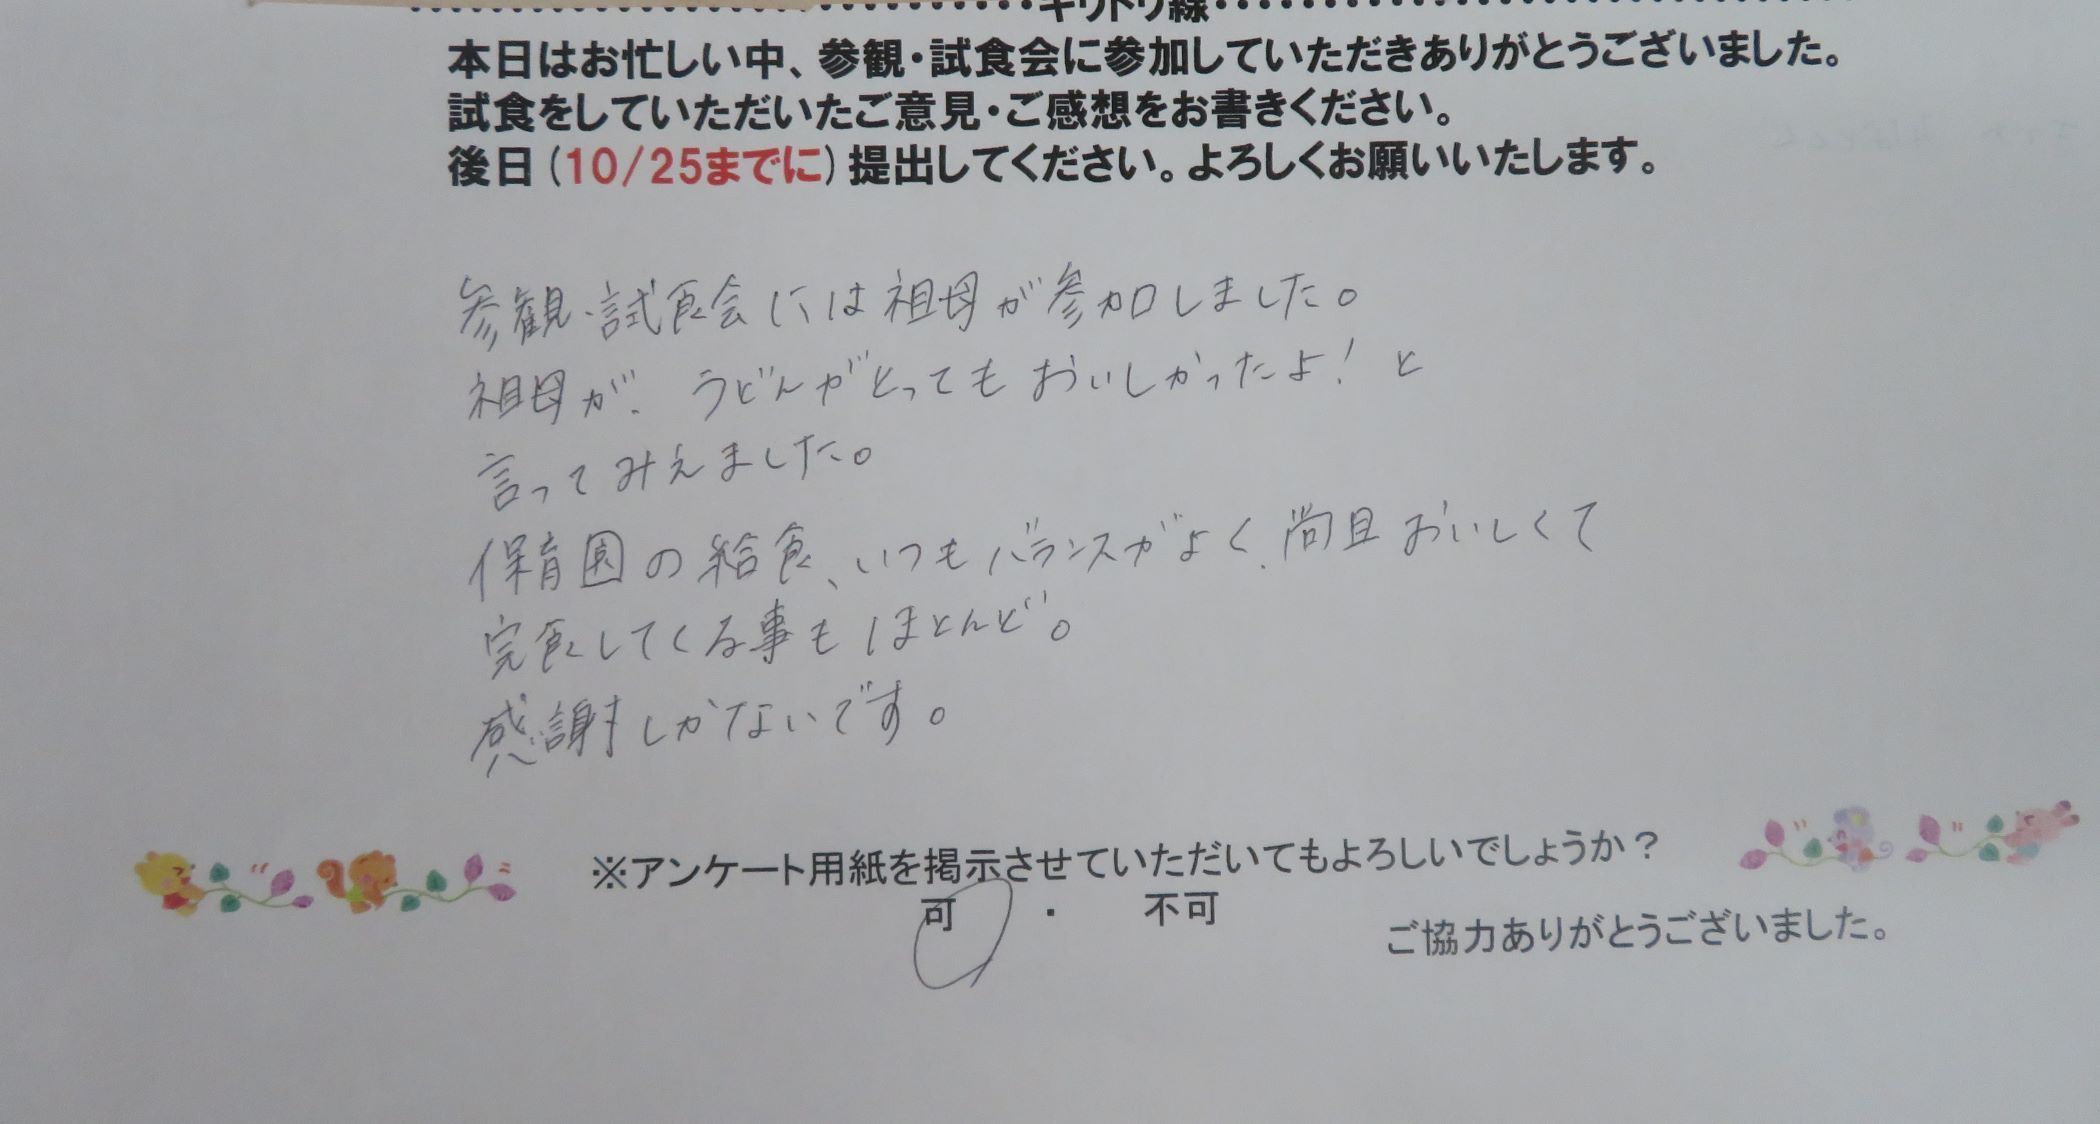 キリトリ線
本日はお忙しい中、参観・試食会に参加していただきありがとうございました。
試食をしていただいたご意見・ご感想をお書きください。
後日(10/25までに)提出してください。よろしくお願いいたします。
参観・試食会には祖母が参加しました。
祖母が、うどんがとってもおいしかったよ!と
言ってみえました。
保育園の給食、いつもバランスがよく、尚且おいしくて
完食してくる事もほとんど。
感謝しかないです。
※アンケート用紙を掲示させていただいてもよろしいでしょうか?
可 ・ 不可
ご協力ありがとうございました。